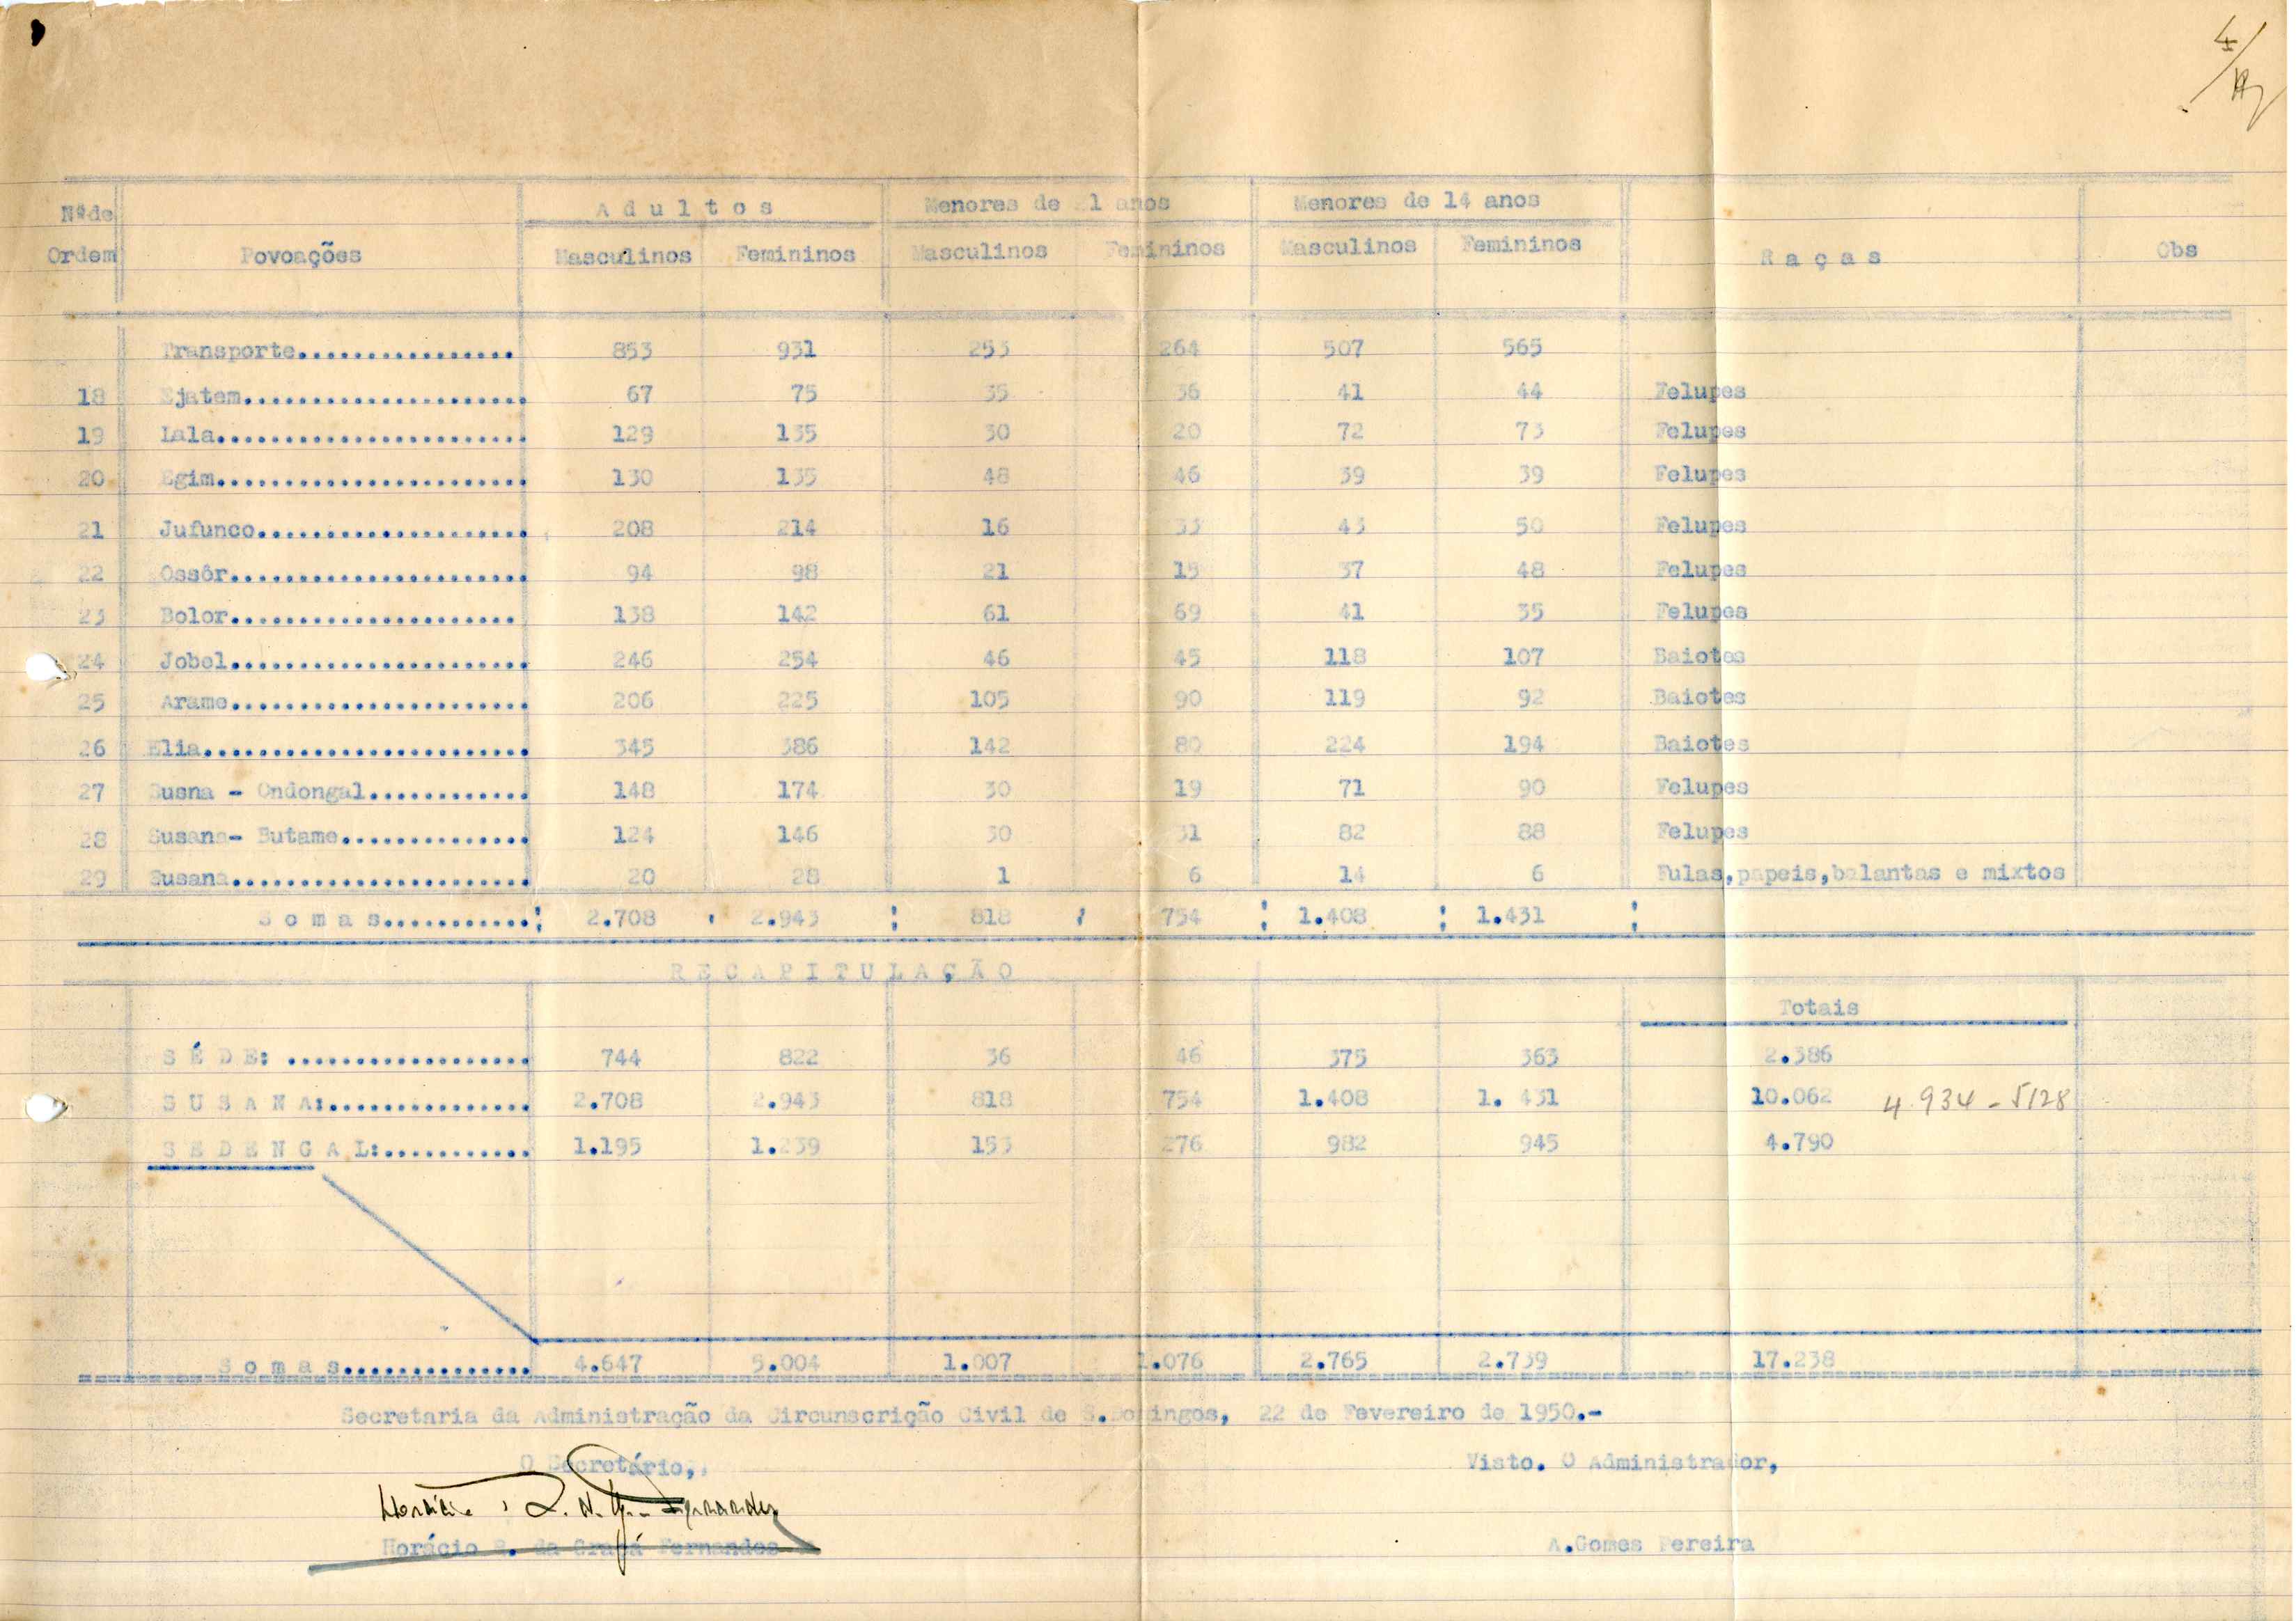 4
Nº de Adultos Menores de 21 anos Menores de 14 anos
Ordem Povoações Masculinos Femininos Masculinos Femininos Masculinos Femininos Raças Obs
Transporte................ 853 931 253 264 507 565
18 Ejatem..................... 67 75 35 36 41 44 Felupes
19 Lala....................... 129 135 30 20 72 73 Felupes
20 Egim....................... 130 135 48 46 39 39 Felupes
21 Jufunco.................... 208 214 16 33 43 50 Felupes
22 Ossôr...................... 94 98 21 15 37 48 Felupes
23 Bolor..................... 138 142 61 69 41 35 Felupes
24 Jobel...................... 246 254 46 45 118 107 Baiotes
25 Arame...................... 206 225 105 90 119 92 Baiotes
26 Elia........................ 345 386 142 80 224 194 Baiotes
27 Susna - Ondongal............ 148 174 30 19 71 90 Felupes
28 Susana- Butame.............. 124 146 30 31 82 88 Felupes
29 Susana...................... 20 28 1 6 14 6 Fulas,papeis,balantas e mixtos
Somas...........: 2.708 2.943 : 818 754 : 1.408 : 1.431 :
RECAPITULAÇÃO
Totais
SÉDE: .................. 744 822 36 46 375 363 2.386
SUSANA:............... 2.708 2.943 818 754 1.408 1. 431 10.062 4.934 - 5128
SEDENGAL:........... 1.195 1.239 153 276 982 945 4.790
Somas.............. 4.647 5.004 1.007 1.076 2.765 2.739 17.238
Secretaria da Administração da Circunscrição Civil de S.Domingos, 22 de Fevereiro de 1950.-
O Secretário, Visto. O Administrador,
Horácio Fernandes
Horácio R. da Graçá Fernandes A.Gomes Pereira